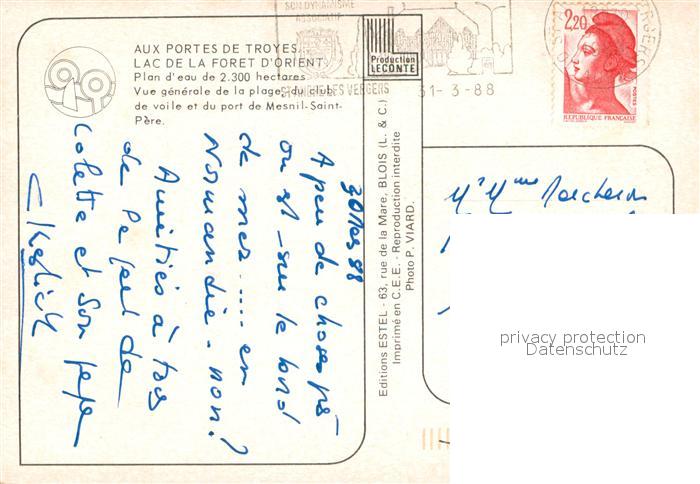 AUX PORTES DE TROYES
LAC DE LA FORET D'ORIENT
Plan d'eau de 2.300 hectares
Vue générale de la plage, du club
de voile et du port de Mesnil-Saint-
Père.
SON DYNAMISME
ASSOCIATIF
DES VERGERS
31-3-88
Production
LECONTE
2,20
POSTES
REPUBLIQUE FRANÇAISE
Editions ESTEL - 63, rue de la Mare, BLOIS (L. & C.)
Imprimé en C.E.E. - Reproduction interdite
Photo P. VIARD.
30 Mars 88
A peu de choses près
on est sur le bord
de mer ..... en
Normandie - non?
Amitiés à tous
de la part de
Colette et son
Mr Mme
privacy protection
Datenschutz